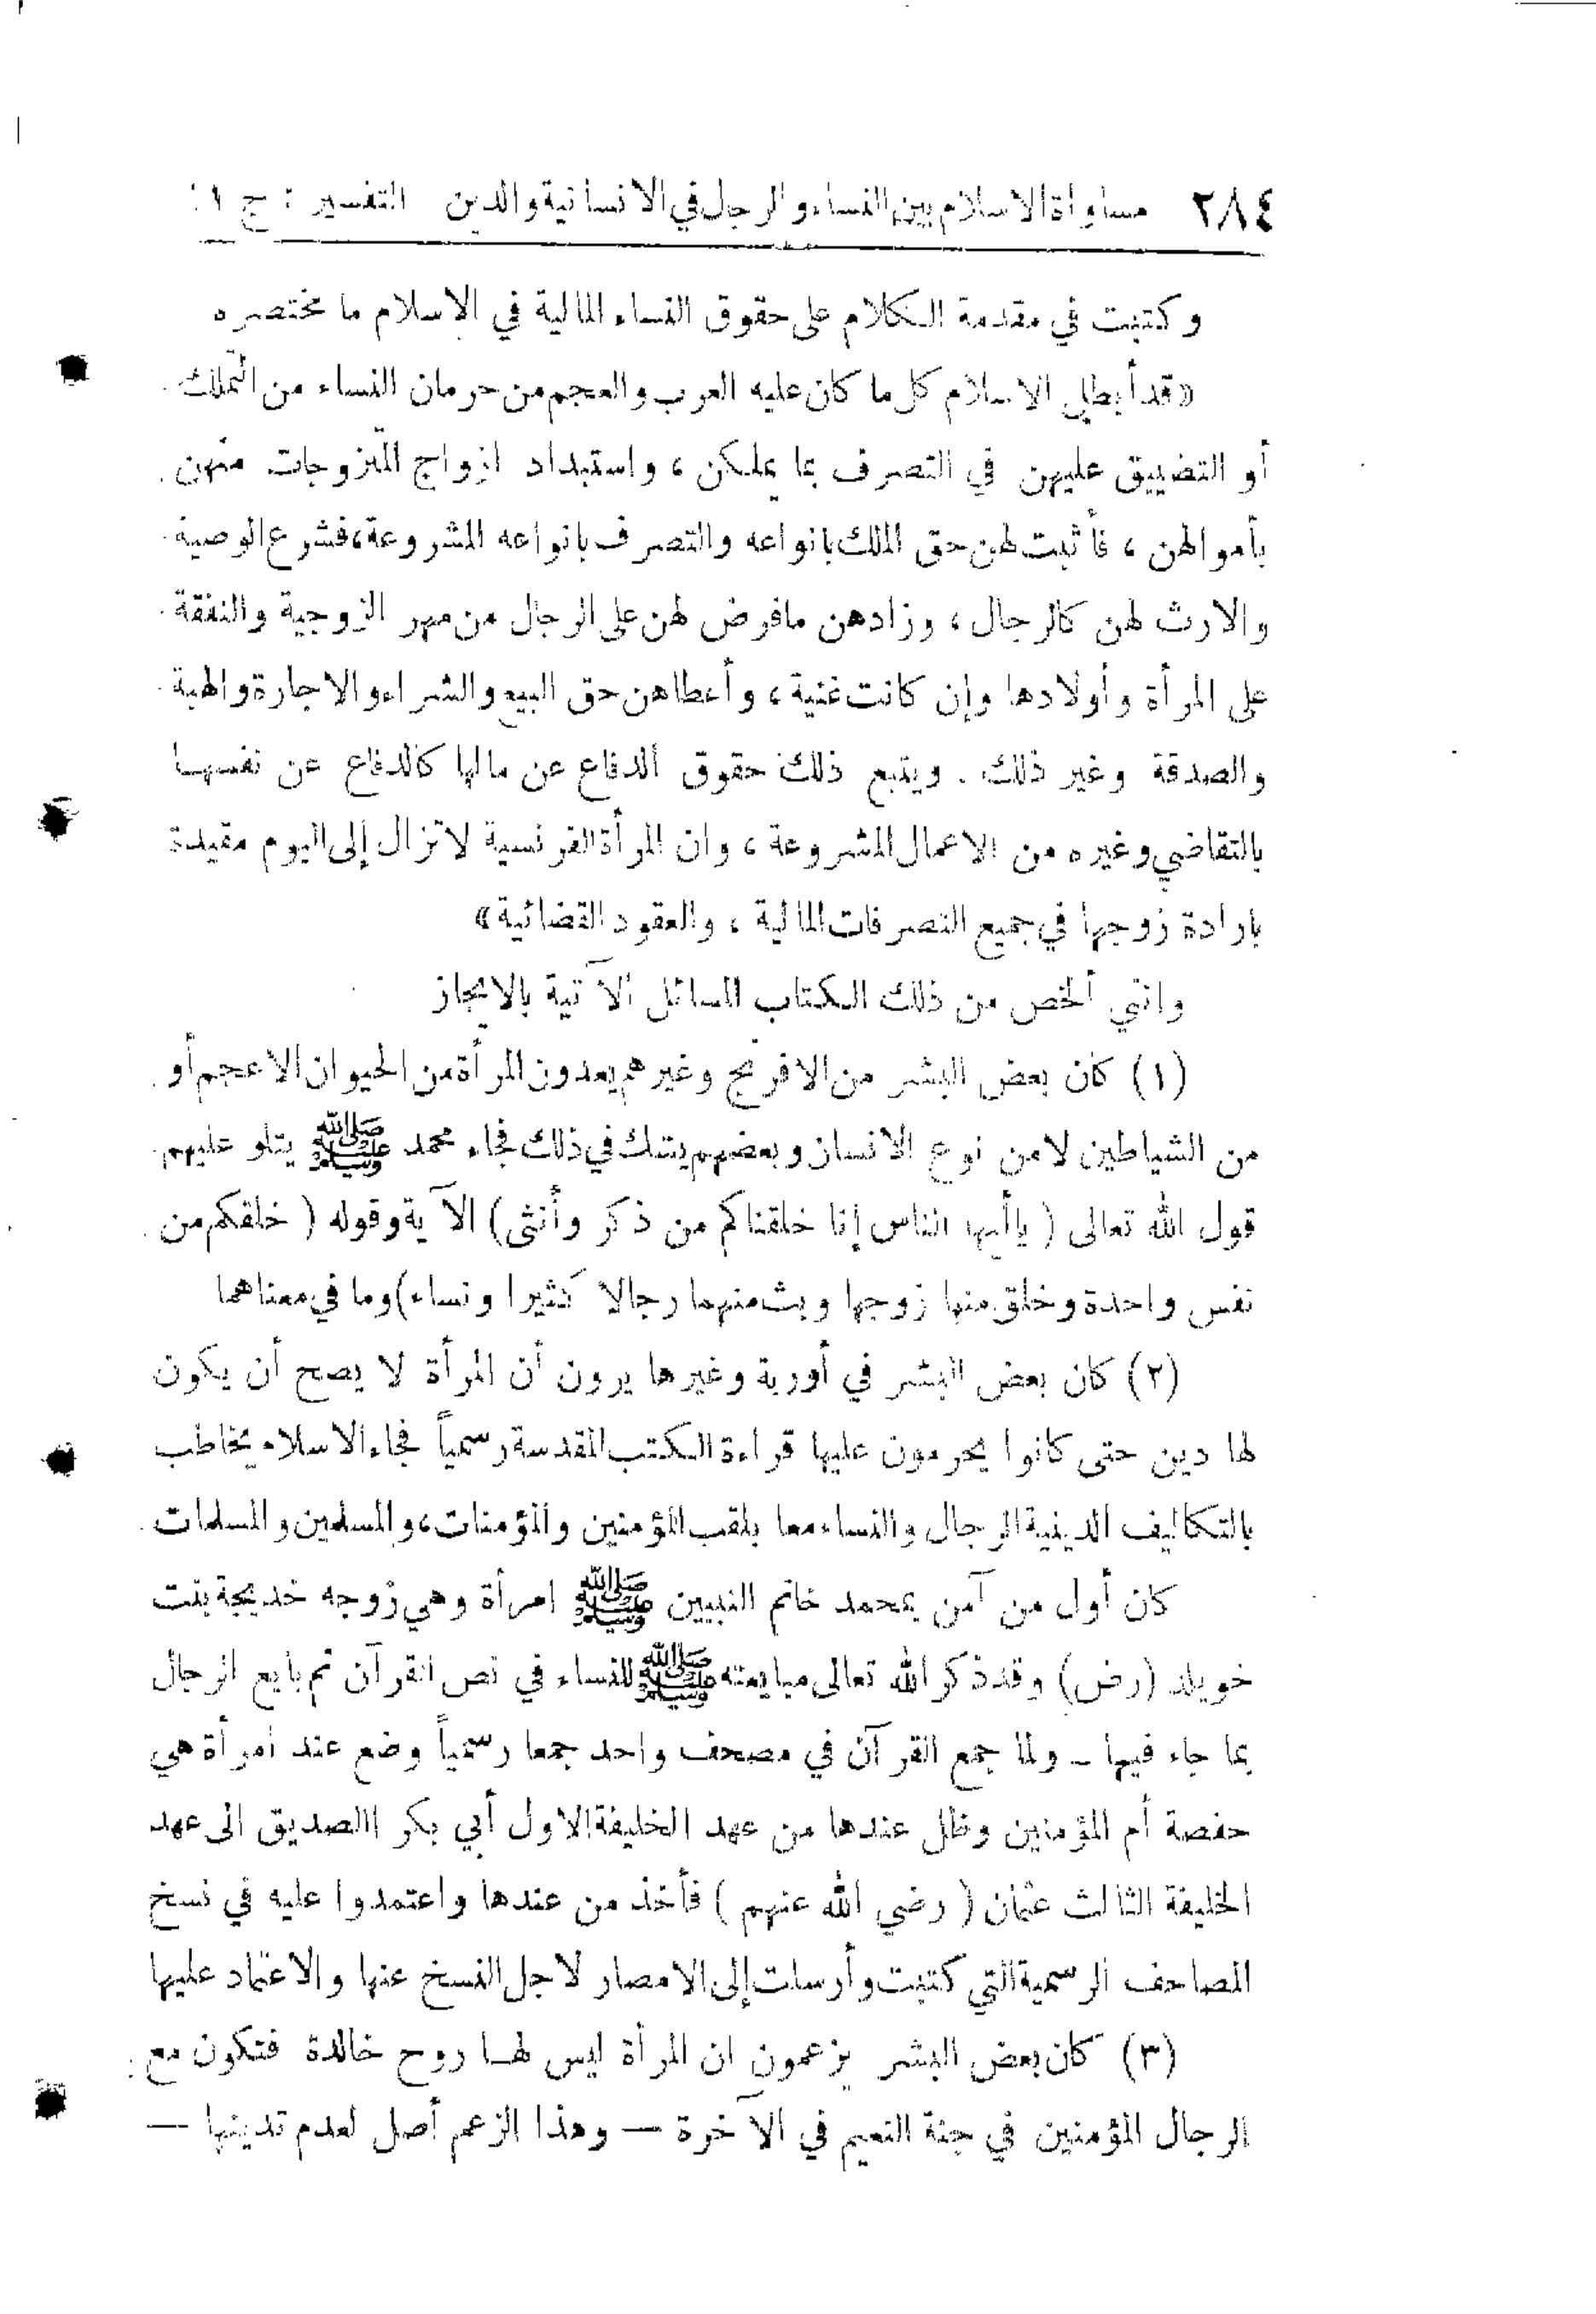 ٢٨٤ مساواة الاسلام بين النساء والرجال في الانسانية والدين التفسير : ج ١١
وكتبت في مقدمة الكلام على حقوق النساء المالية في الاسلام ما مختصره
«قد أبطل الاسلام كل ما كان عليه العرب والعجم من حرمان النساء من التملك
أو التضييق عليهن في التصرف بما يملكن ، واستبداد ازواج المتزوجات منهن
بأموالهن ، فأثبت لهن حق الملك بانواعه والتصرف بانواعه المشروعة، فشرع الوصية
والارث لهن كالرجال ، وزادهن مافرض لهن على الرجال من مهر الزوجية والنفقة
على المرأة وأولادها وإن كانت غنية ، وأعطاهن حق البيع والشراء والاجارة والهبة
والصدقة وغير ذلك . ويتبع ذلك حقوق الدفاع عن مالها كالدفاع عن نفسها
بالتقاضي وغيره من الاعمال المشروعة ، وان المرأة الفرنسية لا تزال إلى اليوم مقيدة
بارادة زوجها في جميع التصرفات المالية ، والعقود القضائية»
وانني ألخص من ذلك الكتاب المسائل الآتية بالايجاز
(١) كان بعض البشر من الافرنج وغيرهم يعدون المرأة من الحيوان الاعجم أو
من الشياطين لا من نوع الانسان وبعضهم يشك في ذلك فجاء محمد ﷺ يتلو عليهم
قول الله تعالى ( ياأيها الناس إنا خلقناكم من ذكر وأنثى) الآية وقوله ( خلقكم من
نفس واحدة وخلق منها زوجها وبث منهما رجالا كثيرا ونساء) وما في معناهما
(٢) كان بعض البشر في أوربة وغيرها يرون أن المرأة لا يصح أن يكون
لها دين حتى كانوا يحرمون عليها قراءة الكتب المقدسة رسمياً فجاء الاسلام يخاطب
بالتكاليف الدينية الرجال والنساء معا بلقب المؤمنين والمؤمنات، والمسلمين والمسلمات
كان أول من آمن بمحمد خاتم النبيين ﷺ امرأة وهي زوجه خديجة بنت
خويلد (رض) وقد ذكر الله تعالى مبايعته ﷺ للنساء في نص القرآن ثم بايع الرجال
بما جاء فيها ـ ولما جمع القرآن في مصحف واحد جمعا رسمياً وضع عند امرأة هي
حفصة أم المؤمنين وظل عندها من عهد الخليفة الاول أبي بكر االصديق الى عهد
الخليفة الثالث عثمان ( رضي الله عنهم ) فأخذ من عندها واعتمدوا عليه في نسخ
المصاحف الرسمية التي كتبت وأرسلت إلى الامصار لاجل النسخ عنها والاعتماد عليها
(٣) كان بعض البشر يزعمون ان المرأة ليس لها روح خالدة فتكون مع
الرجال المؤمنين في جنة النعيم في الآخرة — وهذا الزعم أصل لعدم تدينها —